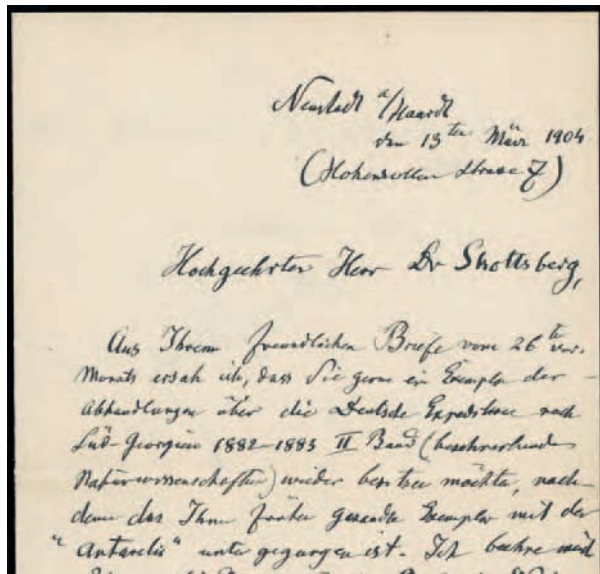 Neustadt a/Haardt
den 13ten März 1904
(Hohenzollern strasse 7)
Hochgeehrter Herr Dr Skottsberg,
Aus Ihrem freundlichen Briefe vom 26ten vor.
Monats ersah ich, dass Sie gerne ein Exemplar der
Abhandlungen über die Deutsche Expedition nach
Süd-Georgien 1882-1883 II Band (beschreibende
Naturwissenschaften) wieder besitzen möchten, nach-
dem das Ihnen früher gesandte Exemplar mit der
"Antarctic" unter gegangen ist. Ich beehre mich